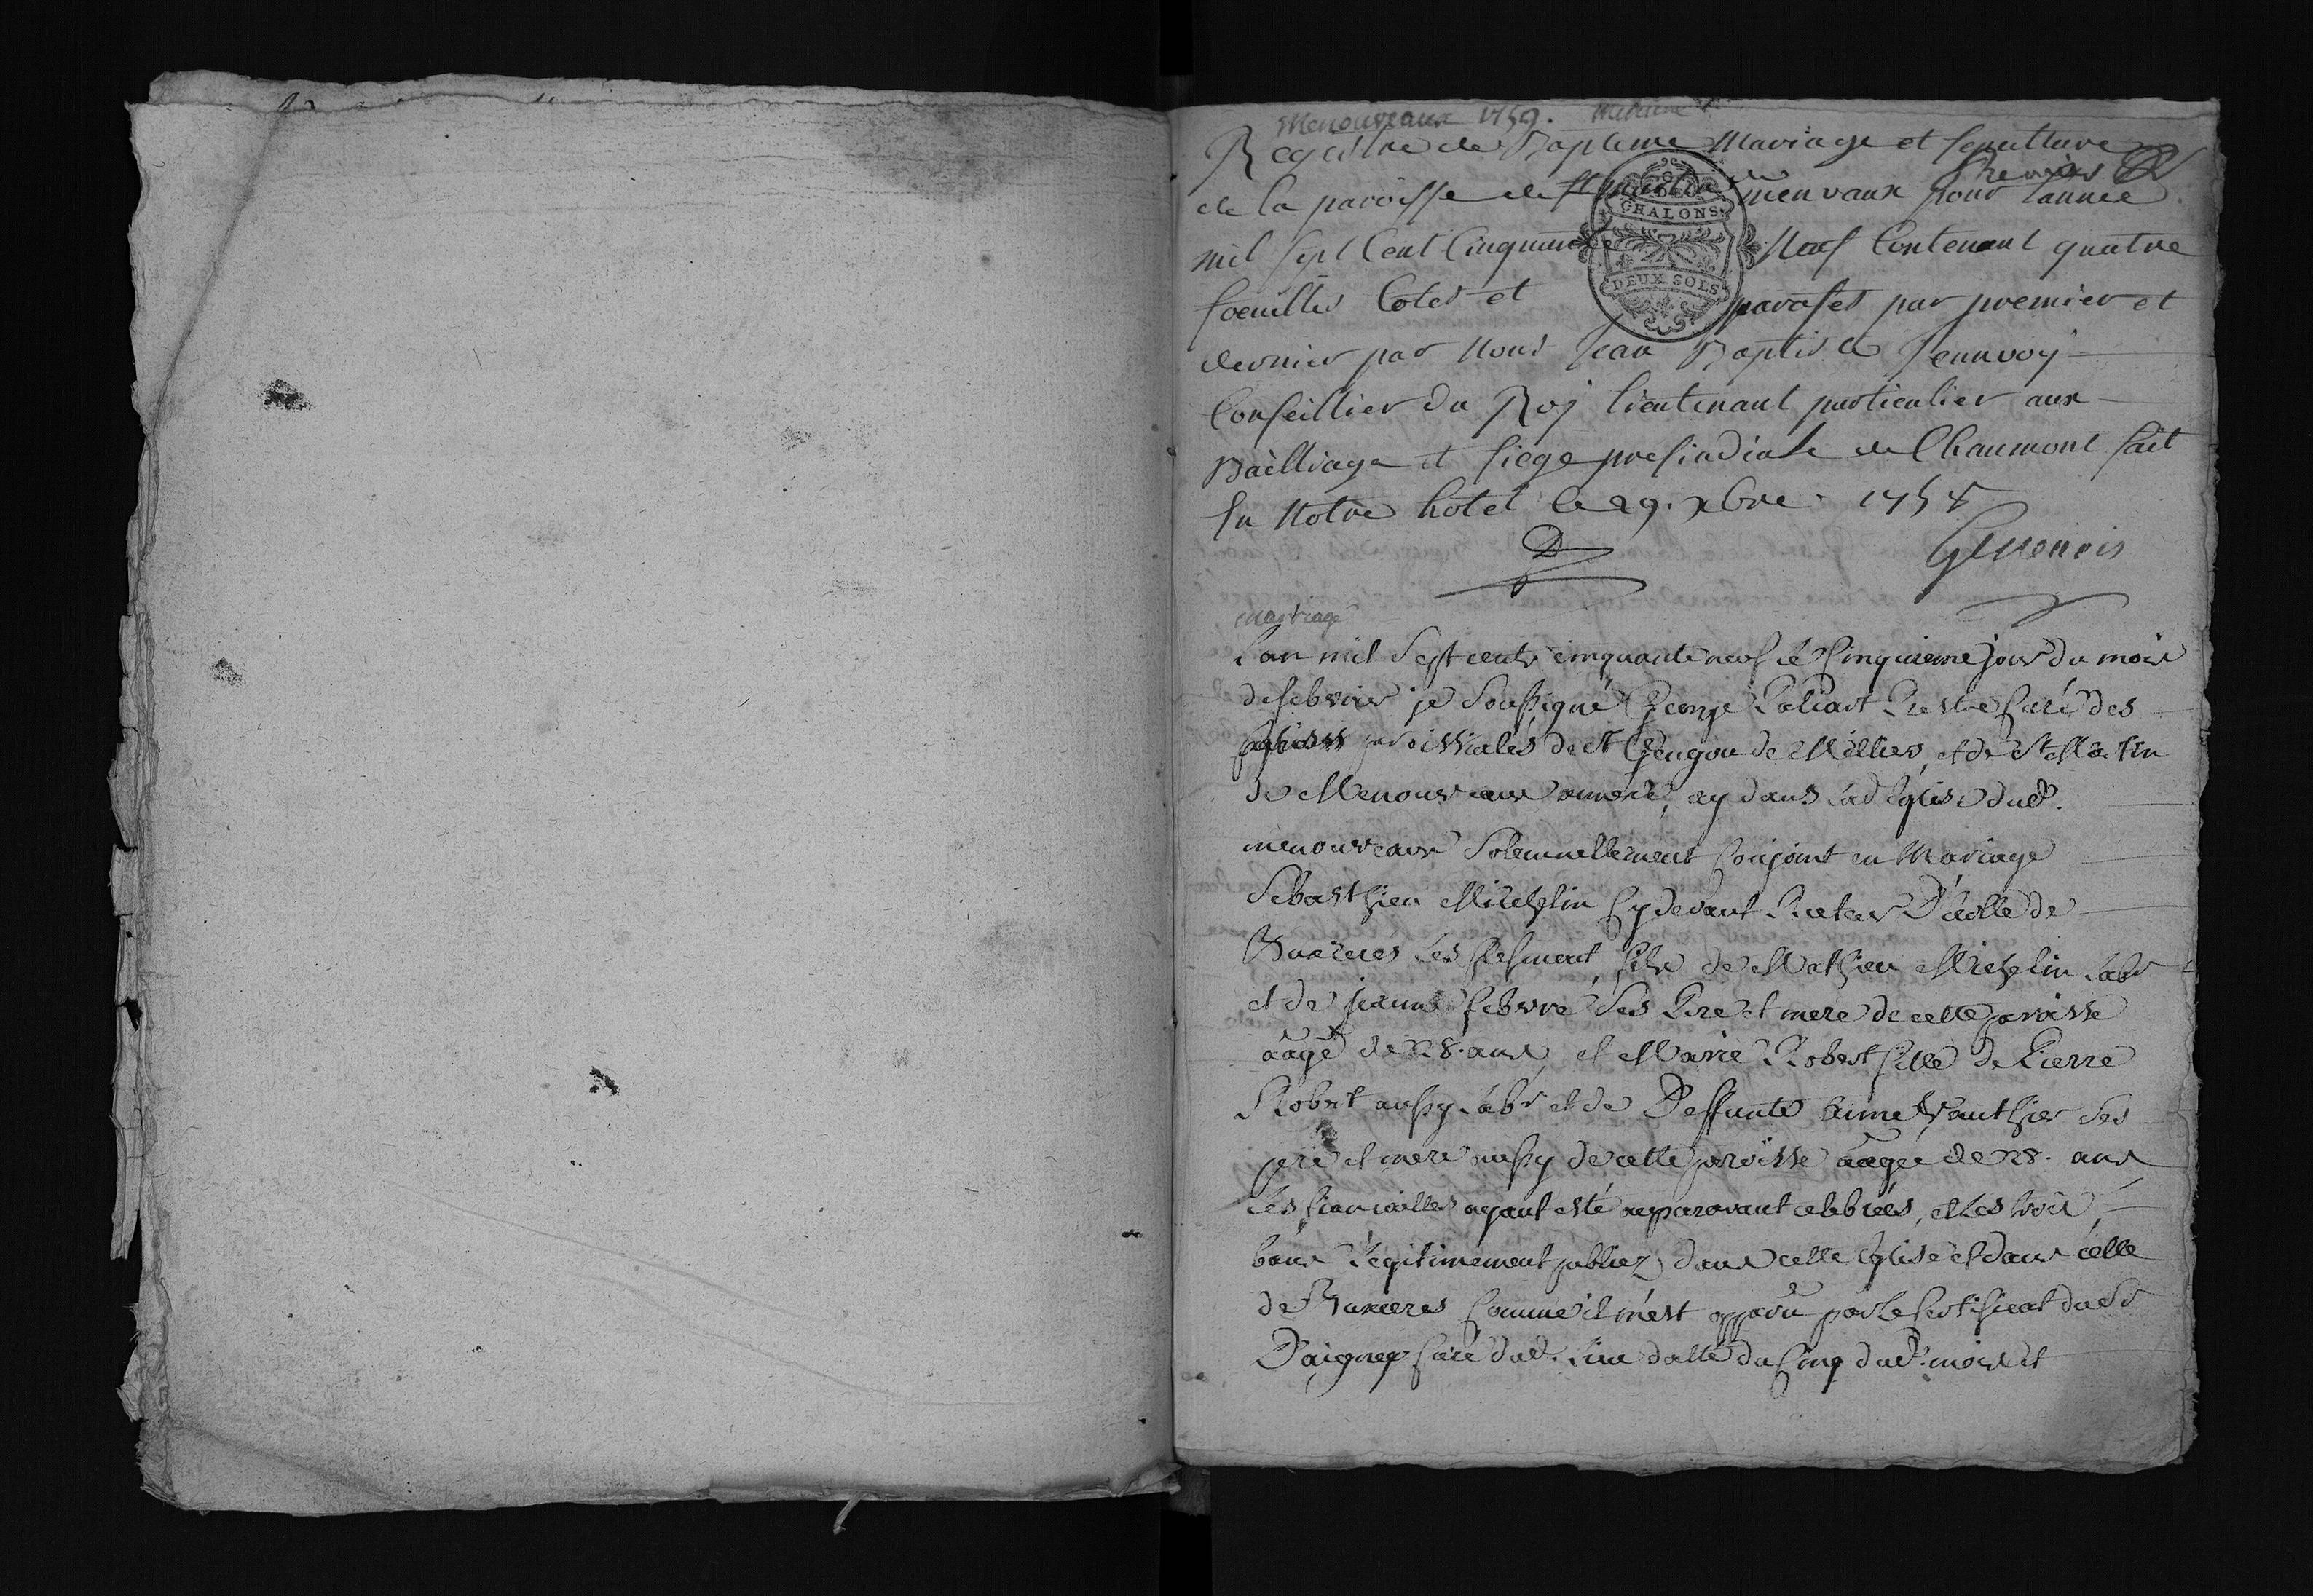 Menouveaux 1759.
Registre de Bapteme Mariage et sepulture
premier
de la paroisse de St martin de menvaux pour lannée
GRALONS
mil sept Cent Cinquante Neuf Contenant quatre
DEUX SOLS
foeuilles Cotes et parafes par premier et
dernier par Nous Jean Baptiste
Conseillier du Roj lieutenant particulier aux
Bailliage et siege presindiale de Chaumont fait
En Notre hotel le 29. xbre 1758
Guenois
mariage
L'an mil Sept cents cinquante neuf le Cinquieme jour du mois
de febvrier je Soussigné George Prestre Curé des
Eglises paroissiales de St Gengou de Millieres, et de St Martin
de Menouveaux annexe, ay dans lad Eglise dud.
menouveaux Solemnellement Conjoint en Mariage
Sebasthien Michelin Cy devant Recteur D'écolle de
Buxieres les fils de Mathieu Michelin labr
et de jeanne febvre Ses Pere et mere de cette paroisse
aâgé de 28. ans, et Marie Robert fille de Pierre
Robert aussy labr et de Deffunte Anne Vauthier Ses
pere et mere aussy de cette paroisse aâgée de 28. ans
Les fiancailles ayant esté auparavant celebrées, et Les trois
bans Légitimement publiez dans cette Eglise et dans celle
de Buxieres Comme il m'est apparu par le Certificat du Sr
Daigney Curé dud. Lieu datté du Cinq dud. mois et